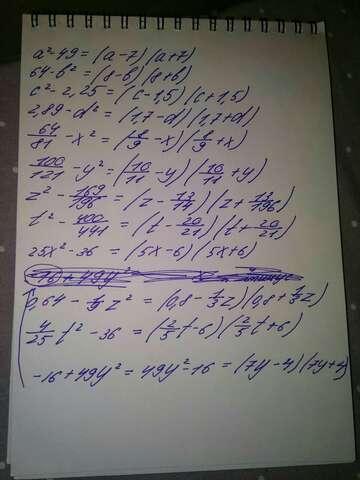 a² - 49 = (a - 7)(a + 7)
64 - b² = (8 - b)(8 + b)
c² - 2,25 = (c - 1,5)(c + 1,5)
2,89 - d² = (1,7 - d)(1,7 + d)
64/81 - x² = (8/9 - x)(8/9 + x)
100/121 - y² = (10/11 - y)(10/11 + y)
z² - 169/196 = (z - 13/14)(z + 13/196)
t² - 400/441 = (t - 20/21)(t + 20/21)
25x² - 36 = (5x - 6)(5x + 6)
-16 + 49y²
0,64 - 1/9 z² = (0,8 - 1/3 z)(0,8 + 1/3 z)
4/25 t² - 36 = (2/5 t - 6)(2/5 t + 6)
-16 + 49y² = 49y² - 16 = (7y - 4)(7y + 4)